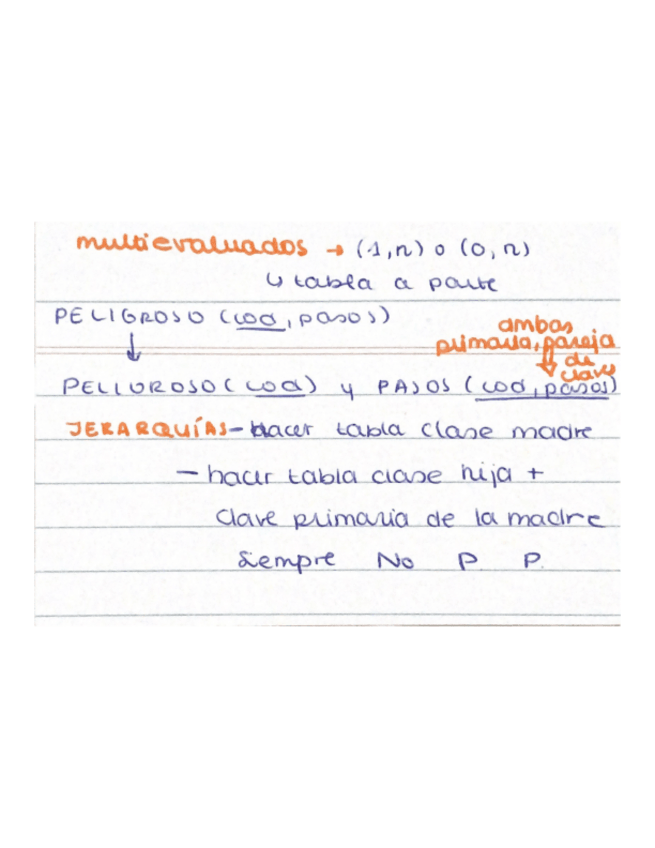 multievaluados → (1,n) o (0,n)
↳ tabla a parte
PELIGROSO (cod, pasos)
↓
ambas
primaria, pareja
de
clave
PELIGROSO (cod) y PASOS (cod, pasos)
JERARQUÍAS - hacer tabla clase madre
- hacer tabla clase hija +
clave primaria de la madre
Siempre No P. P.